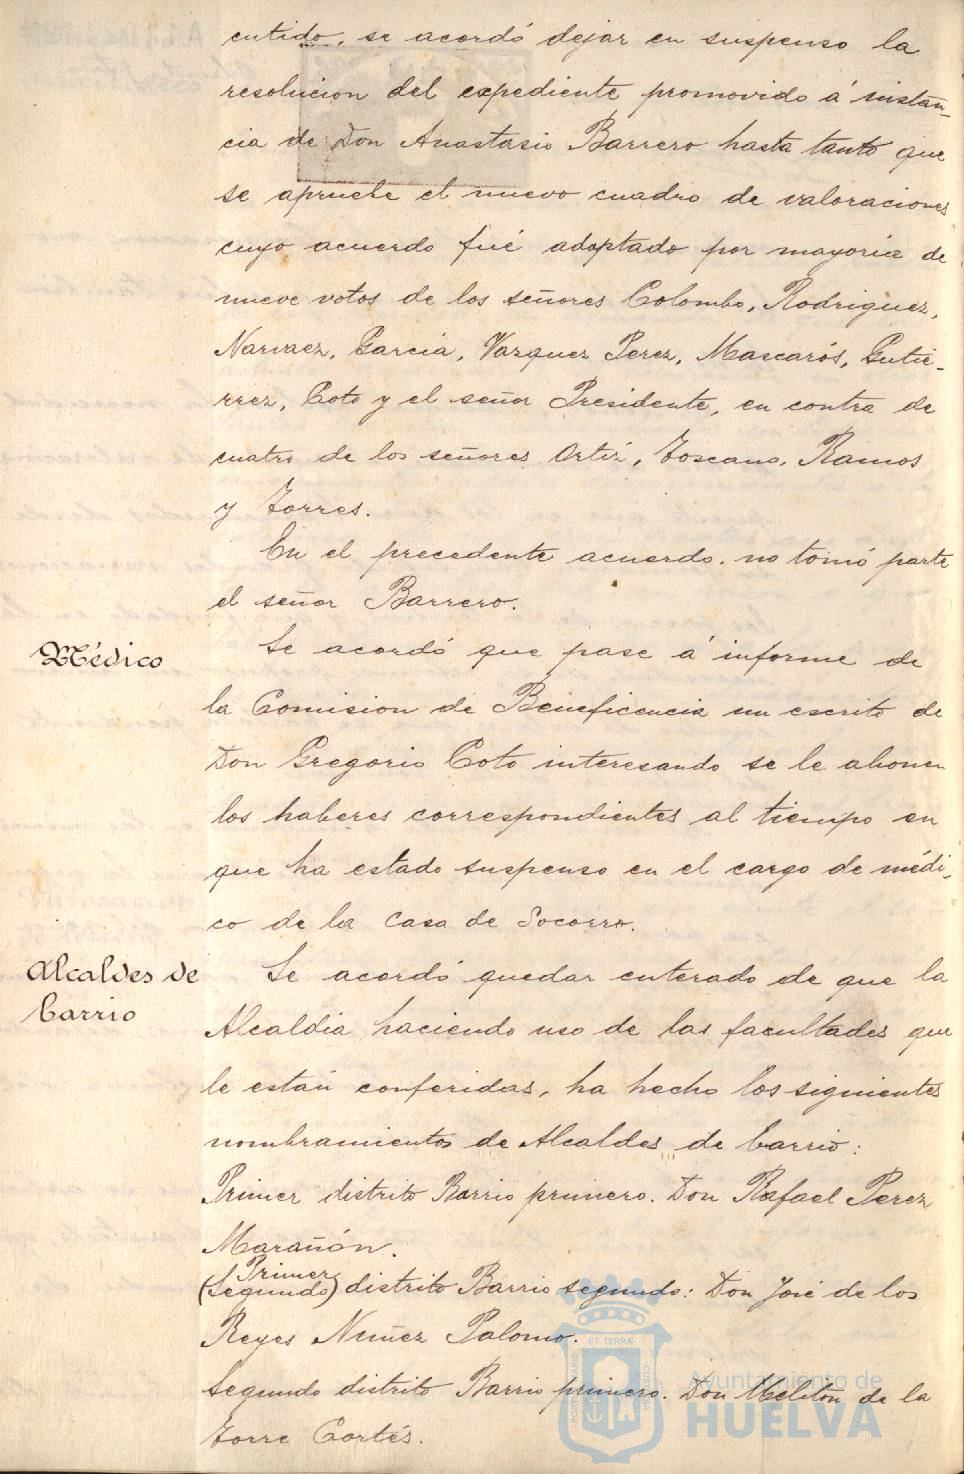 cutido, se acordó dejar en suspenso la
resolucion del expediente promovido á instan-
cia de Don Anastasio Barrero hasta tanto que
se apruebe el nuevo cuadro de valoraciones
cuyo acuerdo fué adoptado por mayoria de
nueve votos de los señores Colombo, Rodriguez,
Narvaez, Garcia, Vazquez Perez, Mascarós, Gutie-
rrez, Coto y el señor Presidente, en contra de
cuatro de los señores Ortiz, Toscano, Ramos
y Torres.
En el precedente acuerdo no tomó parte
el señor Barrero.
Médico
Se acordó que pase á informe de
la Comision de Beneficencia un escrito de
Don Gregorio Coto interesando se le abonen
los haberes correspondientes al tiempo en
que ha estado suspenso en el cargo de médi-
co de la Casa de Socorro.
Alcaldes de
barrio
Se acordó quedar enterado de que la
Alcaldia haciendo uso de las facultades que
le están conferidas, ha hecho los siguientes
nombramientos de Alcaldes de barrio:
Primer distrito Barrio primero. Don Rafael Perez
Marañón.
Primer
(Segundo) distrito Barrio segundo: Don José de los
Reyes Nuñez Palomo.
Segundo distrito Barrio primero. Don Meliton de la
Torre Cortés.
Ayuntamiento de
HUELVA